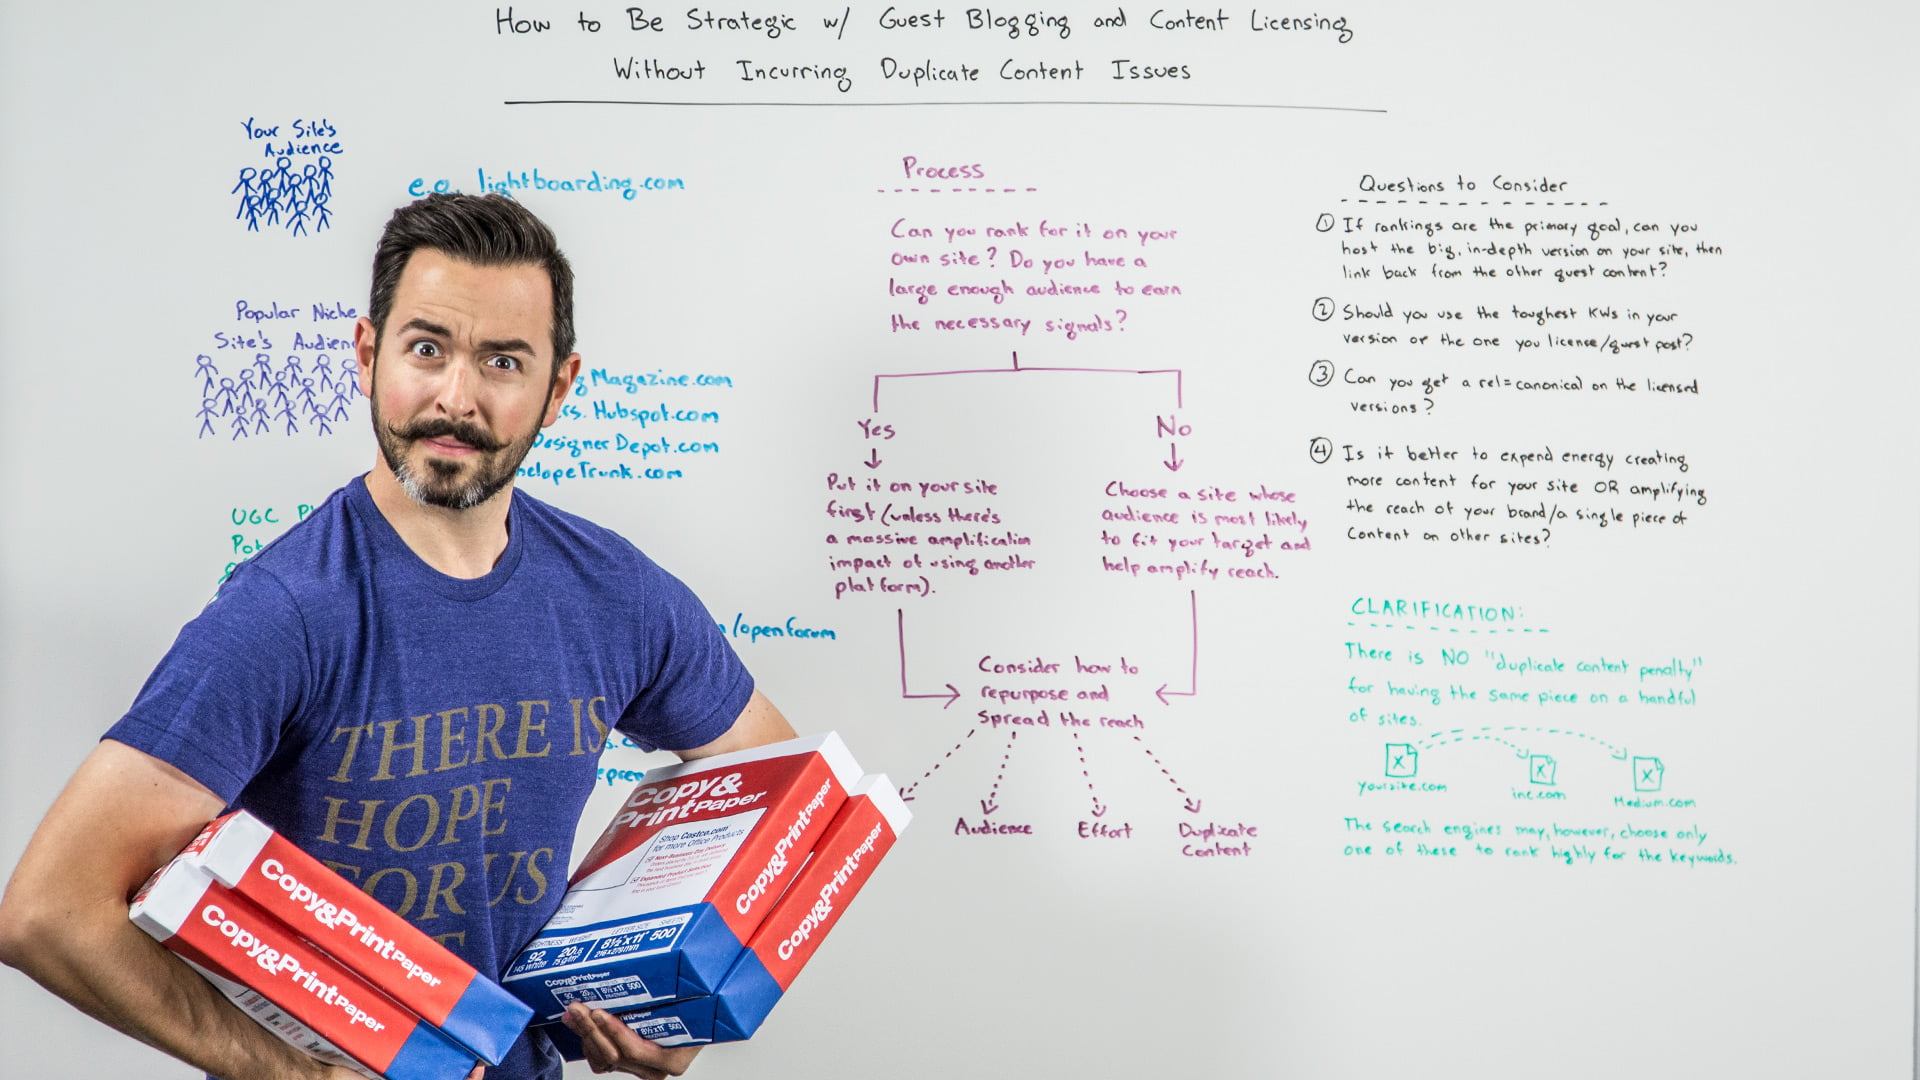 How to Be Strategic w/ Guest Blogging and Content Licensing
Without Incurring Duplicate Content Issues
Your Site's
Audience
e.g. lightboarding.com
Popular Niche
Site's Audien
g Magazine.com
rs. Hubspot.com
DesignerDepot.com
nelopeTrunk.com
UGC Pl
Pot
n/openforum
s.c
epren
Process
Can you rank for it on your
own site? Do you have a
large enough audience to earn
the necessary signals?
Yes
Put it on your site
first (unless there's
a massive amplification
impact of using another
platform).
No
Choose a site whose
audience is most likely
to fit your target and
help amplify reach.
Consider how to
repurpose and
spread the reach
Audience
Effort
Duplicate
Content
Questions to Consider
① If rankings are the primary goal, can you
host the big, in-depth version on your site, then
link back from the other guest content?
② Should you use the toughest KWs in your
version or the one you license/guest post?
③ Can you get a rel=canonical on the licensed
versions?
④ Is it better to expend energy creating
more content for your site OR amplifying
the reach of your brand/a single piece of
content on other sites?
CLARIFICATION:
There is NO "duplicate content penalty"
for having the same piece on a handful
of sites.
X
X
X
yoursite.com
inc.com
Medium.com
The search engines may, however, choose only
one of these to rank highly for the keywords.
THERE IS
HOPE
FOR US
Copy&
PrintPaper
Shop Costco.com
for more Office Products
Next-Business Day Delivery
Expanded Product Selection
Copy&PrintPaper
Copy&PrintPaper
BRIGHTNESS WEIGHT LETTER SIZE SHEETS
92 20LB 8½"x11" 500
145 White 75 g/m² 216x279mm
Copy&PrintPaper
92 20 8½"x11" 500
PrintPaper
8½"x11" 500
Copy&PrintPaper
Copy&PrintPaper